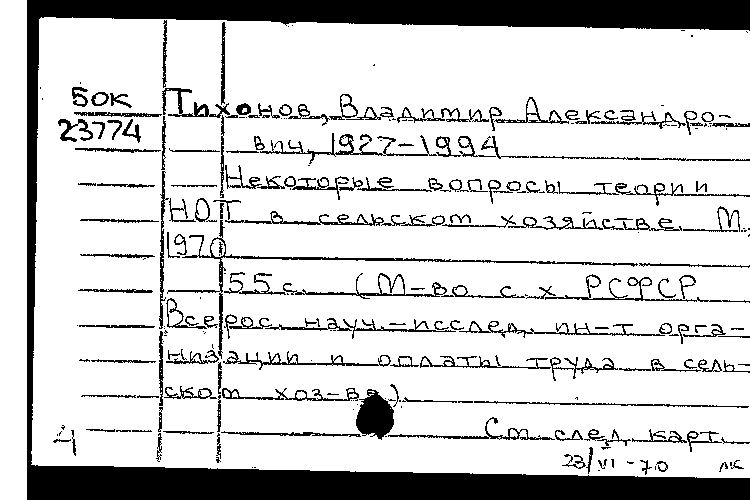 50к
23774
Тихонов, Владимир Александро-
вич, 1927-1994
Некоторые вопросы теории
НОТ в сельском хозяйстве. М.,
1970.
55 с. (М-во с. х. РСФСР.
Всерос. науч.-исслед. ин-т орга-
низации и оплаты труда в сель-
ском хоз-ве).
См. след. карт.
4
23/VI-70 лк